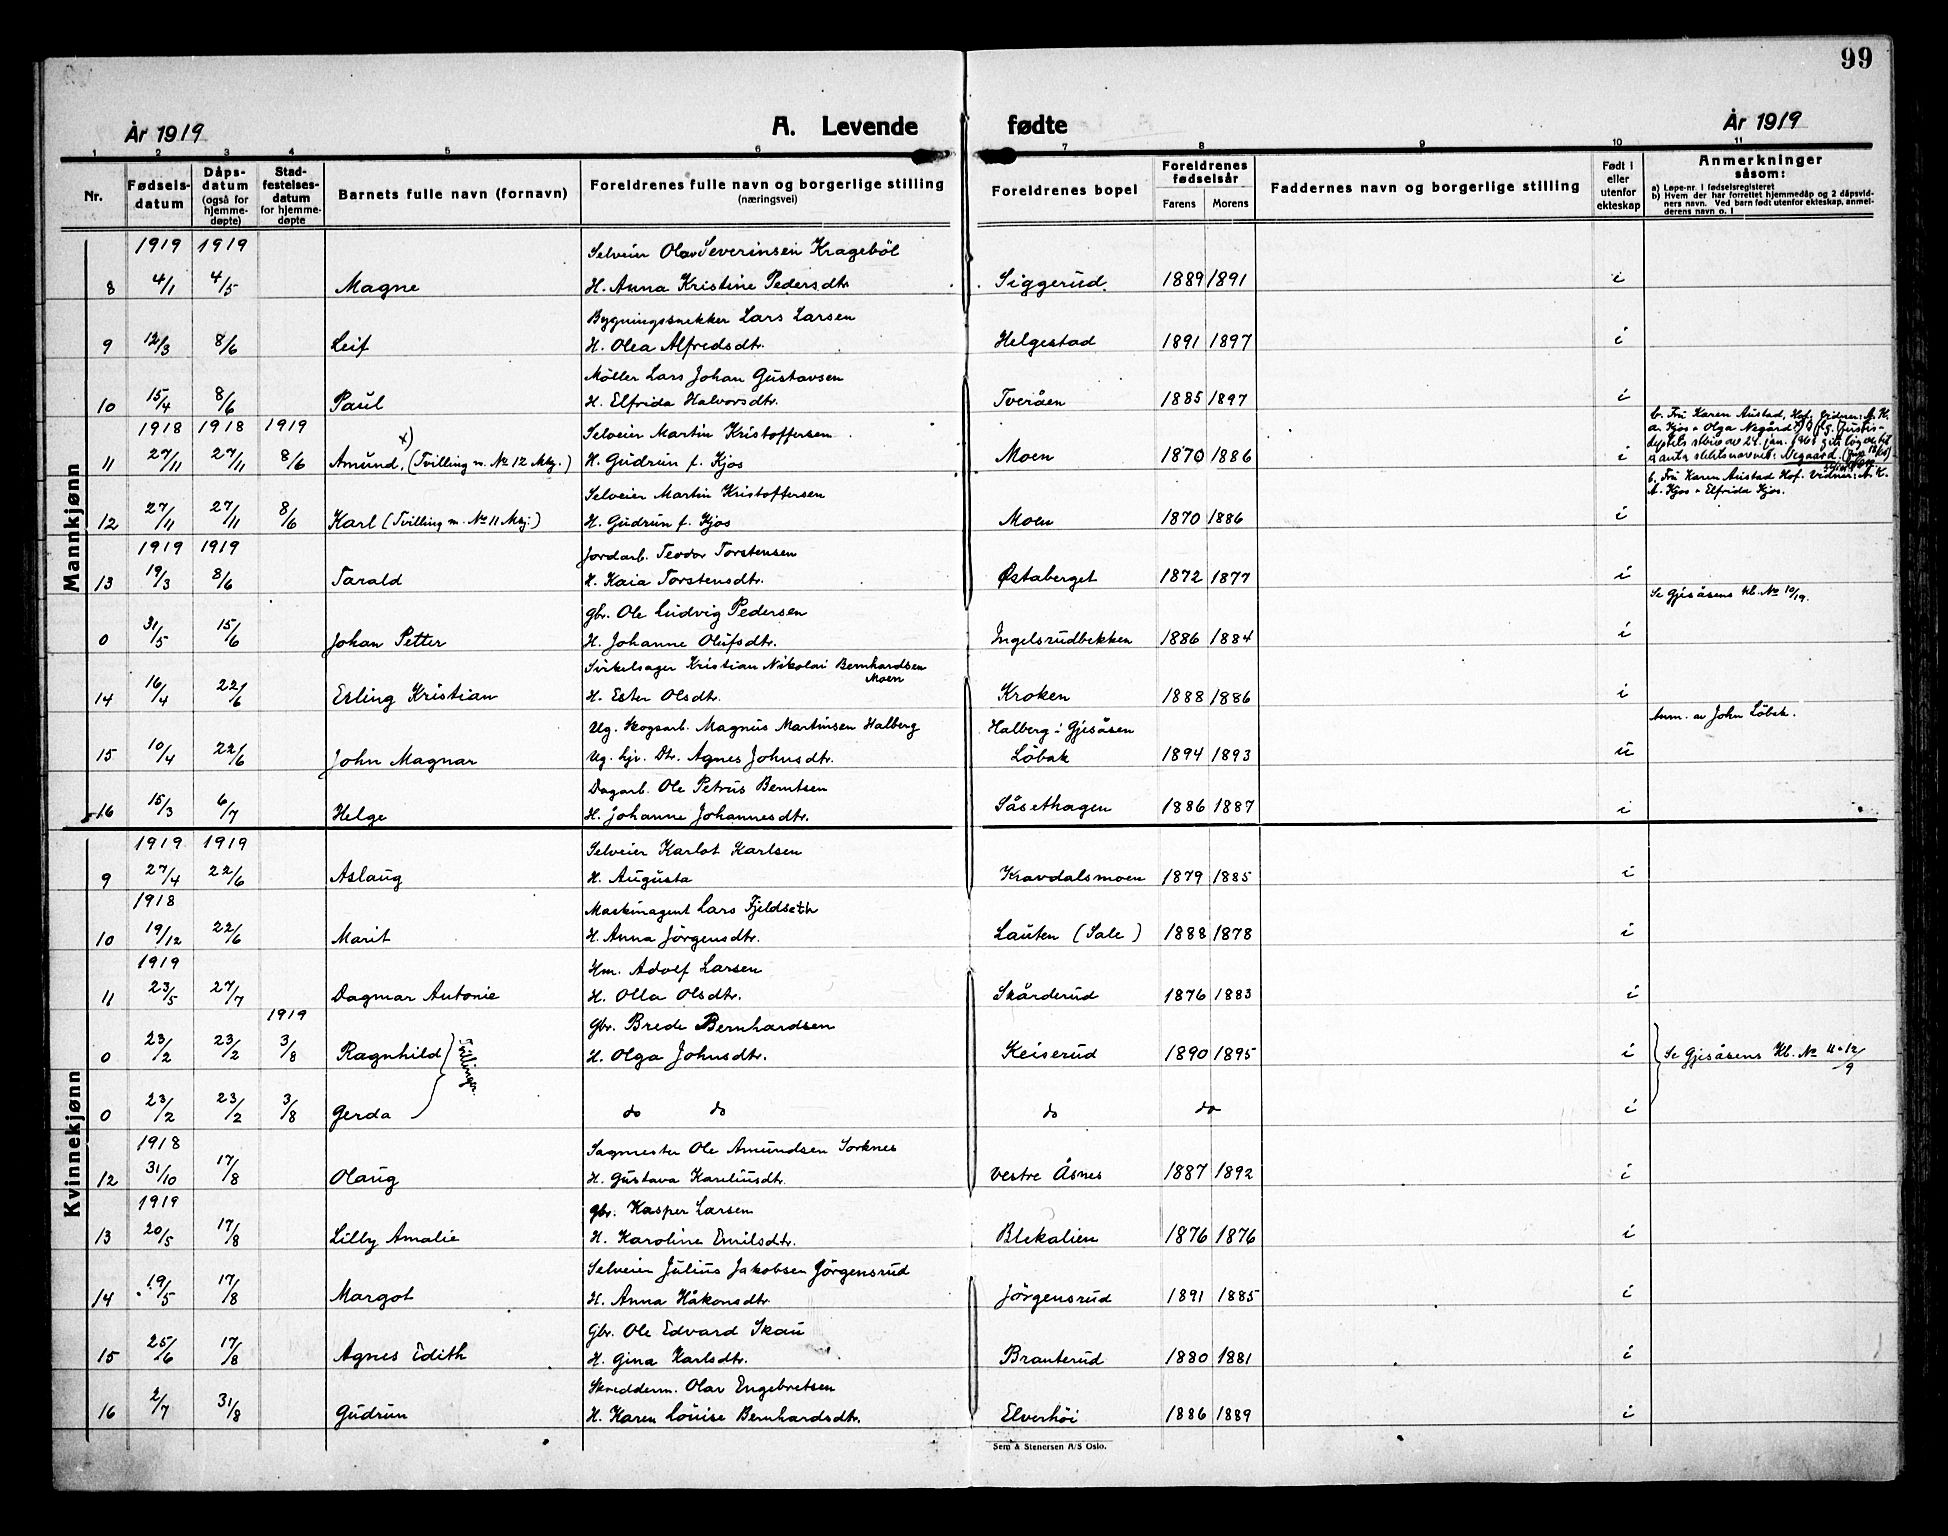 99
År 1919
A. Levende fødte
År 1919
1 2 3 4 5 6 7 8 9 10 11
Nr.
Fødsels-datum
Dåps-datum (også for hjemme-døpte)
Stad-festelses-datum for hjemme-døpte
Barnets fulle navn (fornavn)
Foreldrenes fulle navn og borgerlige stilling (næringsvei)
Foreldrenes bopel
Foreldrenes fødselsår
Farens Morens
Faddernes navn og borgerlige stilling
Født i eller utenfor ekteskap
Anmerkninger såsom:
a) Løpe-nr. i fødselsregisteret
b) Hvem der har forrettet hjemmedåp og 2 dåpsvid-
ners navn. Ved barn født utenfor ekteskap, anmel-
derens navn o. l
Mannkjønn
1919 1919 Selveier Olav Severinsen Krageböl
8 4/1 4/5 Magne H. Anna Kristine Pedersdtr. Siggerud 1889 1891 i
Bygningssnekker Lars Larsen
9 12/3 8/6 Leif H. Olea Alfredsdtr. Helgestad 1891 1897 i
Møller Lars Johan Gustavsen
10 15/4 8/6 Paul H. Elfrida Halvorsdtr. Tveråen 1885 1897 i
1918 1918 1919 x) Selveier Martin Kristoffersen
11 27/11 27/11 8/6 Amund, (Tvilling m. No 12 Mkj.) H. Gudrun f. Kjos Moen 1870 1886 i
b. Fru Karen Austad, Hof. Vidner: A. K.
A. Kjos & Olga Negård
Selveier Martin Kristoffersen
12 27/11 27/11 8/6 Karl (Tvilling m. No 11 Mkj.) H. Gudrun f. Kjos Moen 1870 1886 i
b. Fru Karen Austad Hof. Vidner: A. K.
A. Kjos & Elfrida Kjos.
1919 1919 Jordarb. Teodor Torstensen
13 19/3 8/6 Tarald H. Kaia Torstensdtr. Østaberget 1872 1877 i
Gbr. Ole Ludvig Pedersen Se Gjesåsens Kl. No 10/19.
0 31/5 15/6 Johan Petter H. Johanne Olufsdtr. Ingelsrudbekken 1886 1884 i
Sirkelsager Kristian Nikolai Bernhardsen Moen
14 16/4 22/6 Erling Kristian H. Ester Olsdtr. Kroken 1888 1886 i
Ug. Skogsarb. Magnus Martinsen Halberg Halberg i Gjesåsen Anm. av John Löbak.
15 10/4 22/6 John Magnar Ug. hjv. Dtr. Agnes Johnsdtr. Löbak 1894 1893 u
Dagarb. Ole Petrus Berntsen
16 15/3 6/7 Helge H. Johanne Johannesdtr. Såsethagen 1886 1887 i
Kvinnekjønn
1919 1919 Selveier Karlot Karlsen
9 27/4 22/6 Aslaug H. Augusta Kravdalsmoen 1879 1885 i
1918 Maskinagent Lars Fjeldseth
10 19/12 22/6 Marit H. Anna Jörgensdtr. Lauten (Sale) 1888 1878 i
1919 Hm. Adolf Larsen
11 23/5 27/7 Dagmar Antonie H. Olla Olsdtr. Skårderud 1876 1883 i
1919 Gbr. Brede Bernhardsen
0 23/2 23/2 3/8 Ragnhild Tvillinger H. Olga Johnsdtr. Keiserud 1890 1895 i Se Gjesåsens Kl. No 11 & 12/9
0 23/2 23/2 3/8 Gerda do do do do i
1918 Sagmester Ole Amundsen Sorknes
12 31/10 17/8 Olaug H. Gustava Kareliusdtr. Vestre Åsnes 1887 1892 i
1919 Gbr. Kasper Larsen
13 20/5 17/8 Lilly Amalie H. Karoline Emilsdtr. Blekalien 1876 1876 i
Selveier Julius Jakobsen Jörgensrud
14 19/5 17/8 Margot H. Anna Håkonsdtr. Jörgensrud 1891 1885 i
Gbr. Ole Edvard Skau
15 25/6 17/8 Agnes Edith H. Gina Karlsdtr. Branterud 1880 1881 i
Skredderm. Olav Engebretsen
16 2/7 31/8 Gudrun H. Karen Louise Bernhardsdtr. Elverhöi 1886 1889 i
Sem & Stenersen A/S Oslo.